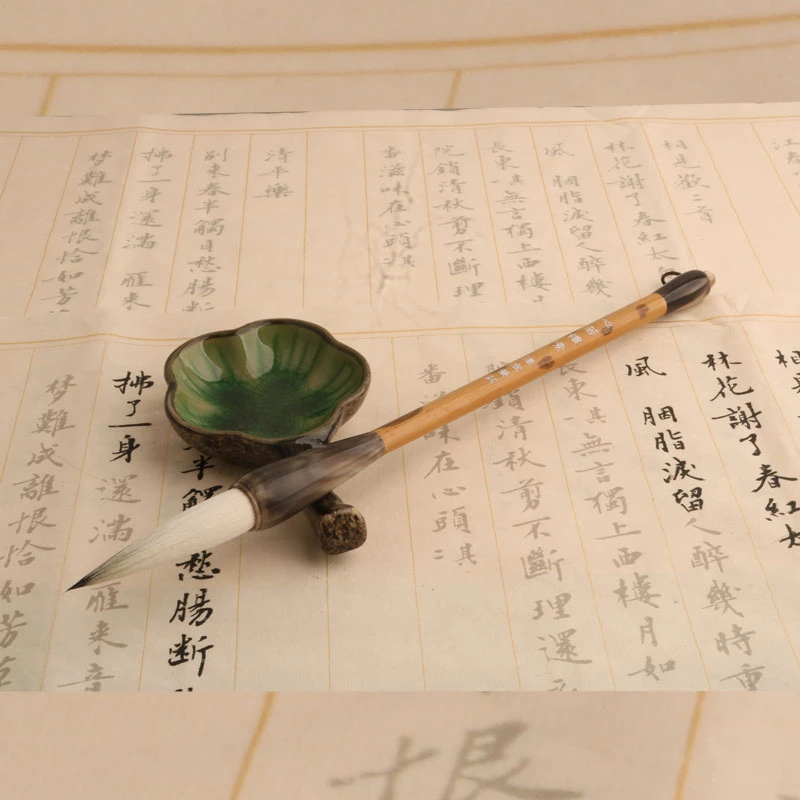 江
相見歡二首
林花謝了春紅太
風 胭脂淚留人醉幾
長東 其無言獨上西樓
院鎖清秋剪不斷理
番滋味在心頭 其
清平樂
別來春半觸目愁腸斷
拂了一身還滿 雁來
夢難成離恨恰如芳
相
林花謝了春紅太
風 胭脂淚留人醉幾時重
長東 其無言獨上西樓月如
鎖清秋剪不斷理還
番滋味在心頭 其
半觸 愁腸斷
拂了一身還滿 雁來音
夢難成離恨恰如芳草
恨